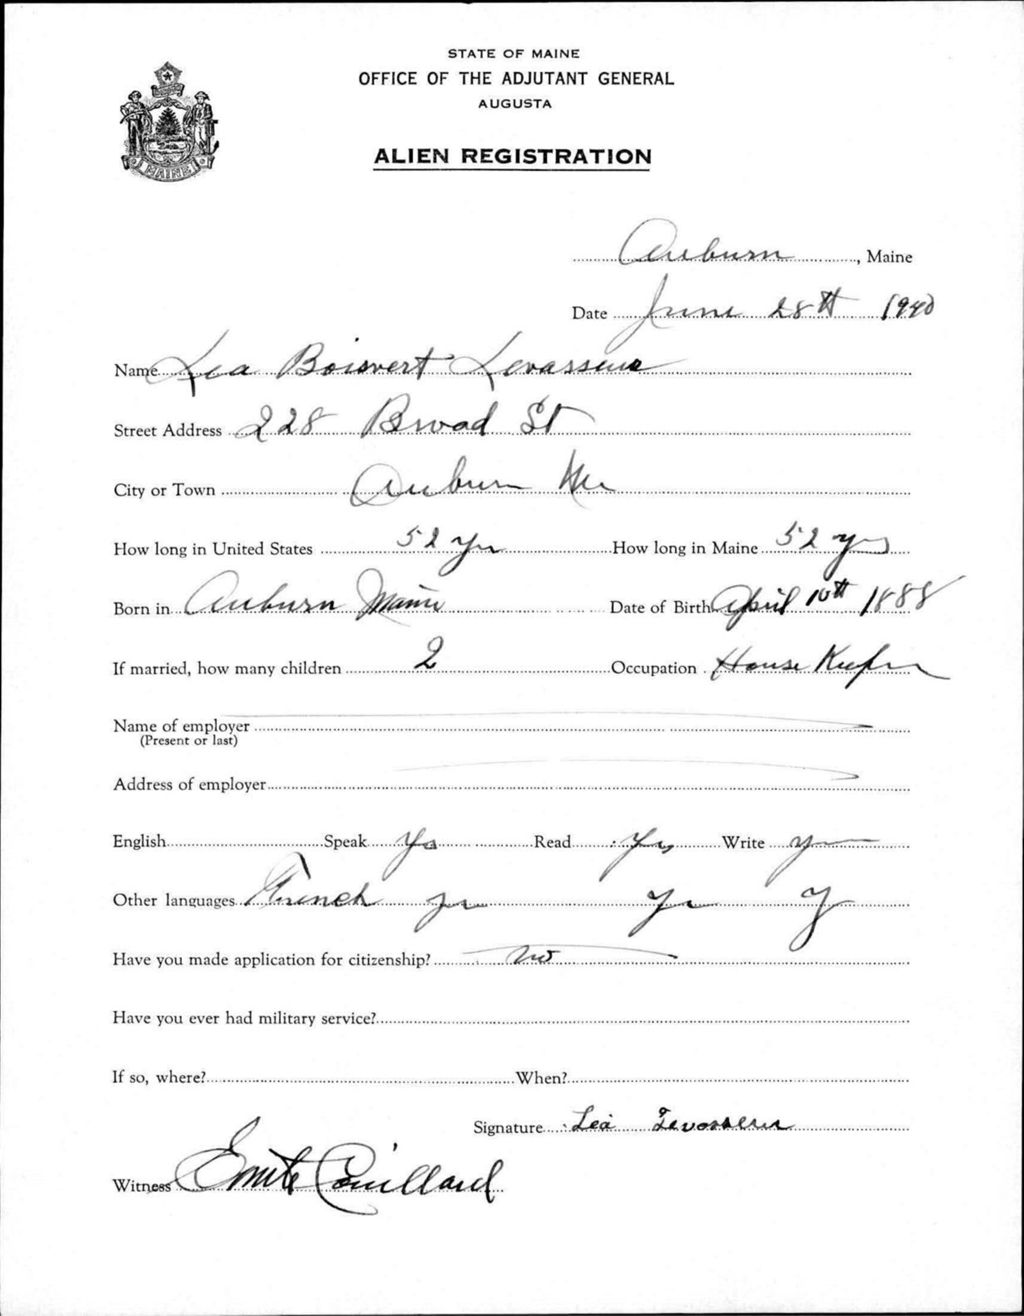 STATE OF MAINE
OFFICE OF THE ADJUTANT GENERAL
AUGUSTA
ALIEN REGISTRATION
MAINE
Auburn, Maine
Date June 28th 1940
Name Lea Boisvert Levasseur
Street Address 228 Broad St
City or Town Auburn Me
How long in United States 52 yrs How long in Maine 52 yrs
Born in Auburn Maine Date of Birth April 10th 1888
If married, how many children 2 Occupation House Keeper
Name of employer
(Present or last)
Address of employer
English Speak Yes Read Yes Write Yes
Other languages French yes yes y
Have you made application for citizenship? no
Have you ever had military service?
If so, where? When?
Signature Lea Levasseur
Witness Emile Couillard